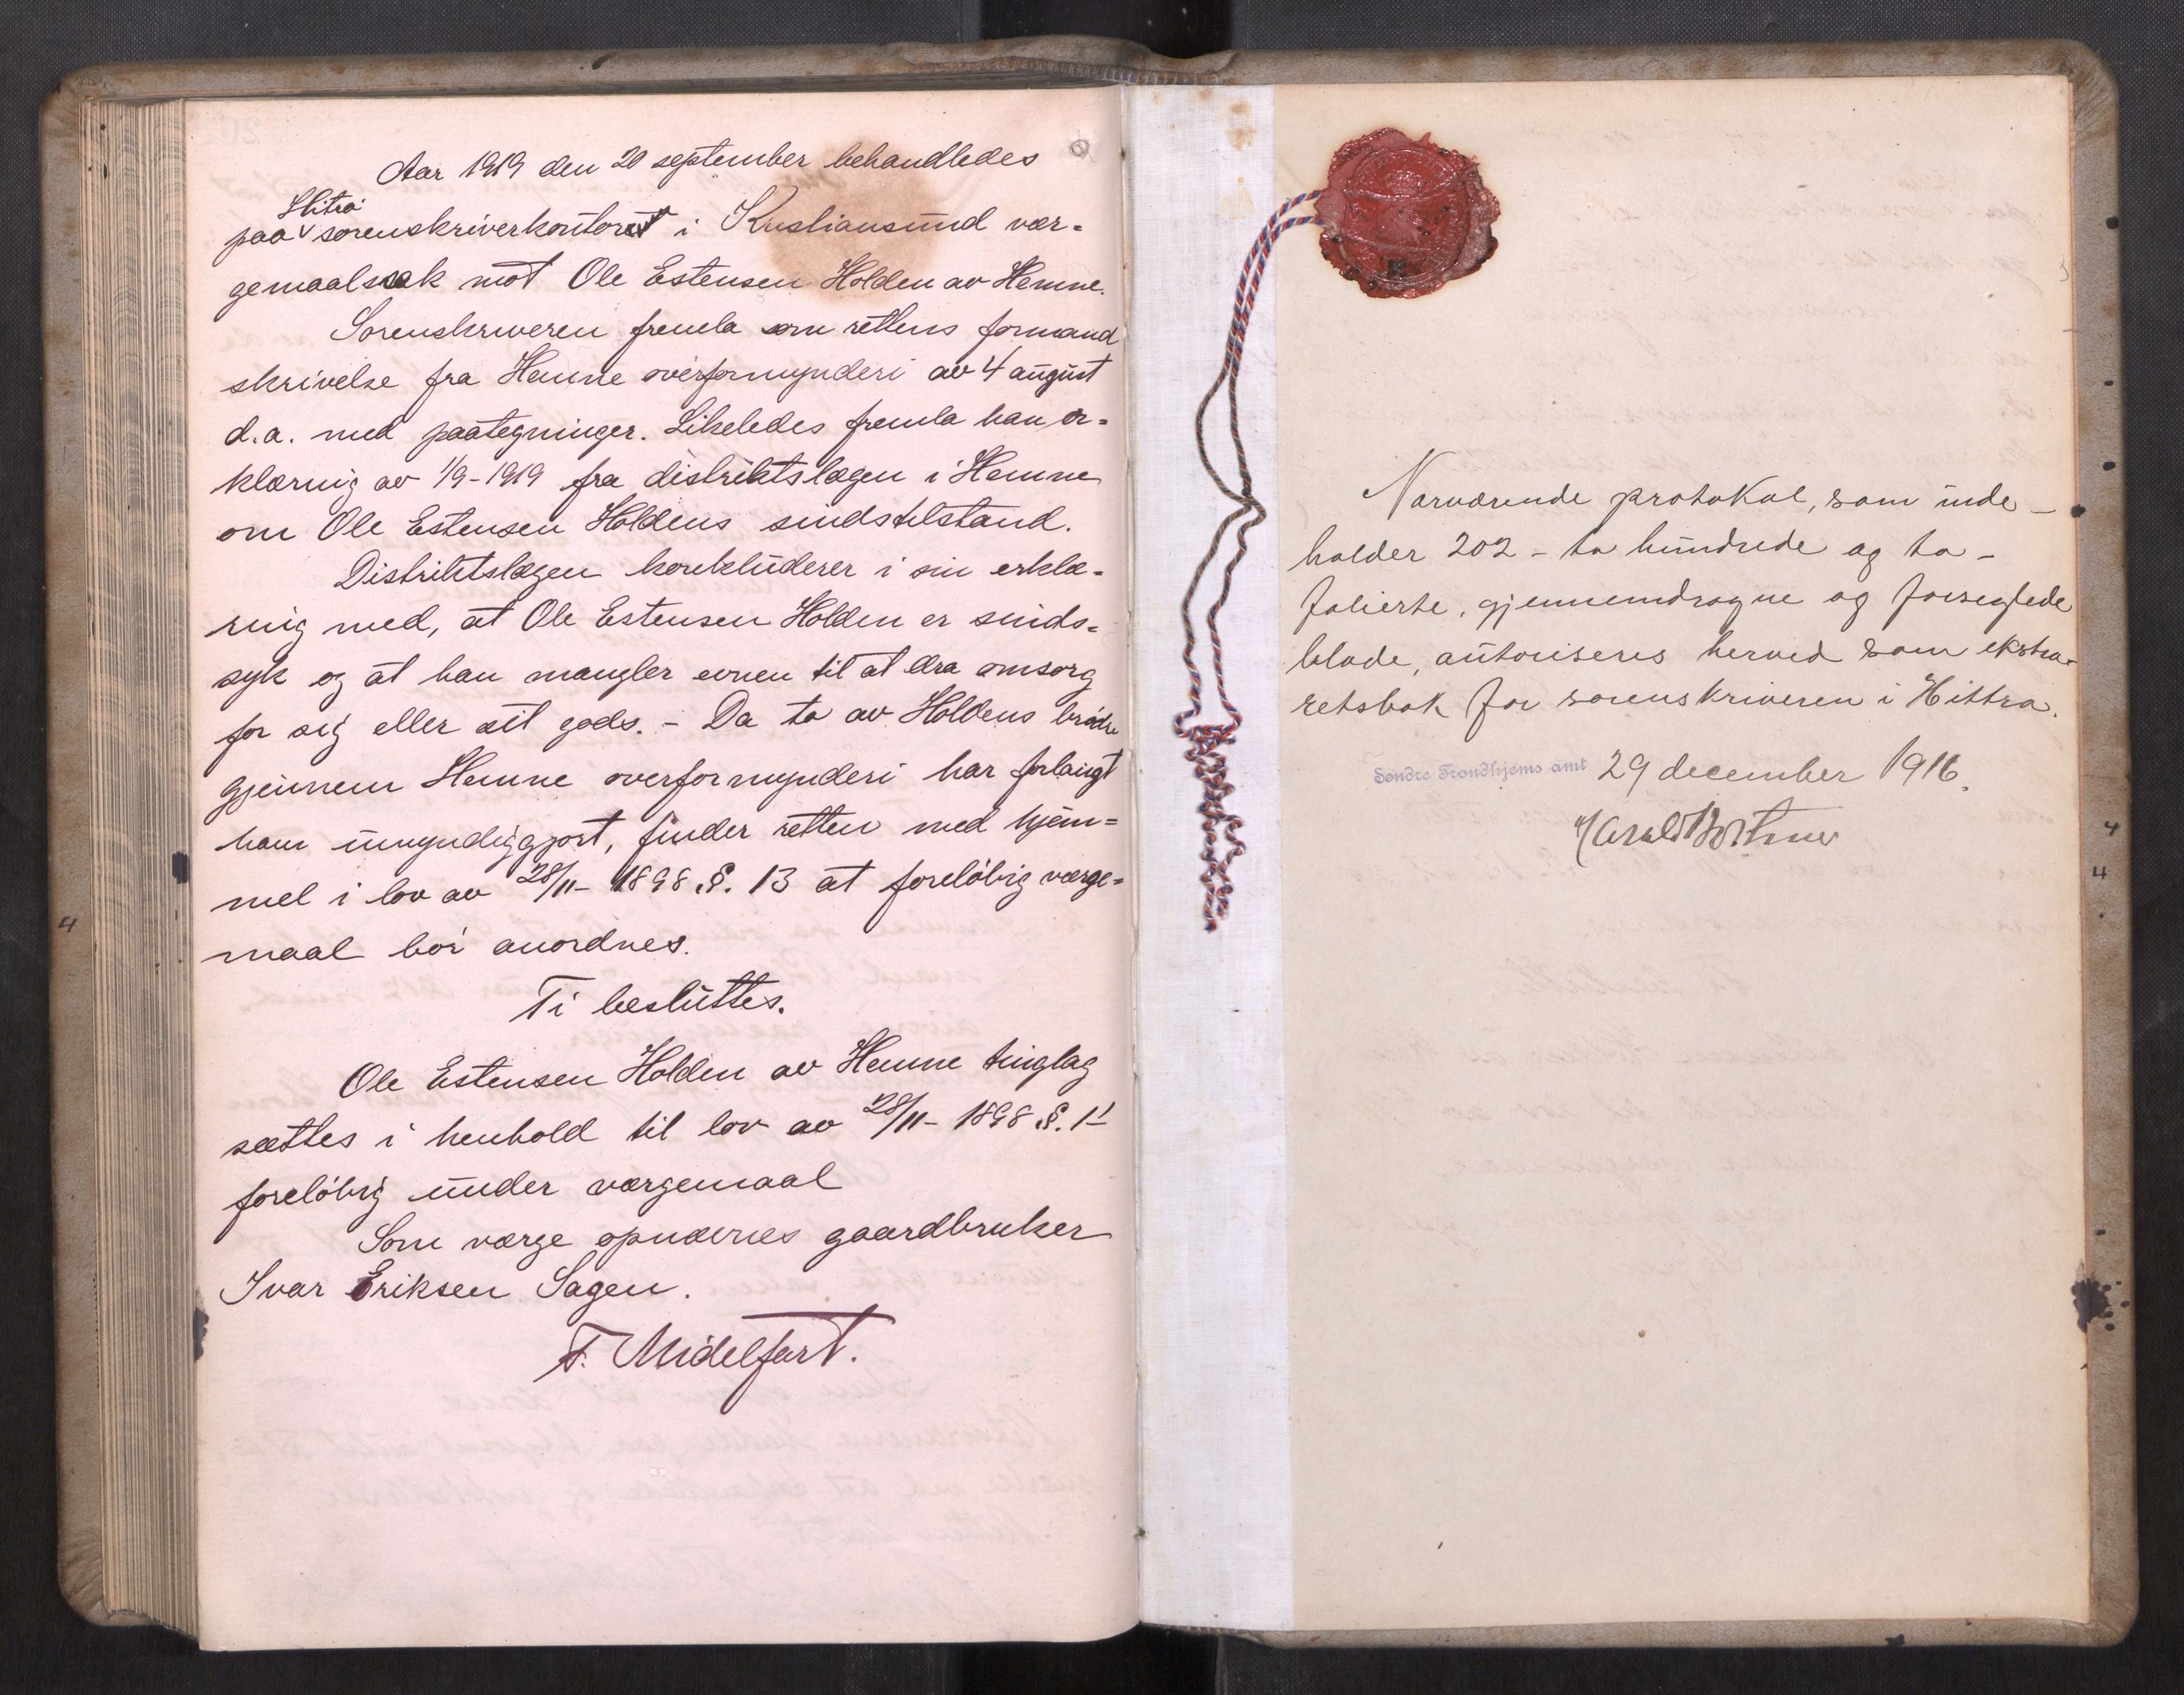 Aar 1919 den 20 september behandledes
Hitra
paa sorenskriverkontoret i Kristiansund vær-
gemaalssak mot Ole Estensen Holden av Hemne.
Sorenskriveren fremla som rettens formand
skrivelse fra Hemne overformynderi av 4 august
d.a. med paategninger. Likeledes fremla han er-
klæring av 1/9-1919 fra distriktslægen i Hemne
om Ole Estensen Holdens sindstilstand.
Distriktslægen konkluderer i sin erklæ-
ring med, at Ole Estensen Holden er sinds-
syk og at han mangler evnen til at dra omsorg
for sig eller sit gods. - Da to av Holdens brødre
gjennem Hemne overformynderi har forlangt
ham umyndiggjort, finder retten med hjem-
mel i lov av 28/11-1898 §. 13 at foreløbig værge-
maal bør anordnes.
Ti besluttes.
Ole Estensen Holden av Hemne tinglag
sættes i henhold til lov av 28/11-1898 §. 1
foreløbig under værgemaal
Som værge opnævnes gaardbruker
Ivar Eriksen Sagen.
F. Midelfart.
Nærværende protokol, som inde-
holder 202 - to hundrede og to -
folierte, gjennemdragne og forseglede
blade, autoriseres herved som ekstra-
retsbok for sorenskriveren i Hittra.
Søndre Trondhjems amt 29 december 1916.
Harald Bothner
4
4
4